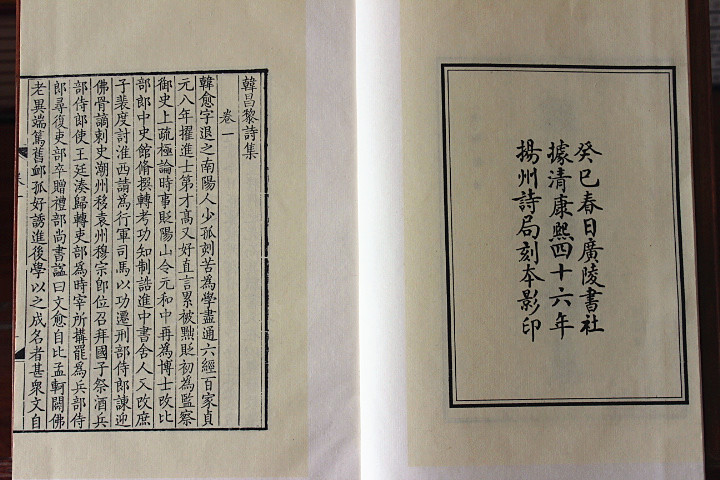 癸巳春日廣陵書社
據清康熙四十六年
揚州詩局刻本影印
韓昌黎詩集
卷一
韓愈字退之南陽人少孤刻苦為學盡通六經百家貞
元八年擢進士第才高又好直言累被黜貶初為監察
御史上疏極論時事貶陽山令元和中再為博士改比
部郎中史館脩撰轉考功知制誥進中書舍人又改庶
子裴度討淮西請為行軍司馬以功遷刑部侍郎諫迎
佛骨謫刺史潮州移袁州穆宗即位召拜國子祭酒兵
部侍郎使王廷湊歸轉吏部為時宰所搆罷為兵部侍
郎尋復吏部卒贈禮部尚書諡曰文愈自比孟軻闢佛
老異端篤舊卹孤好誘進後學以之成名者甚衆文自